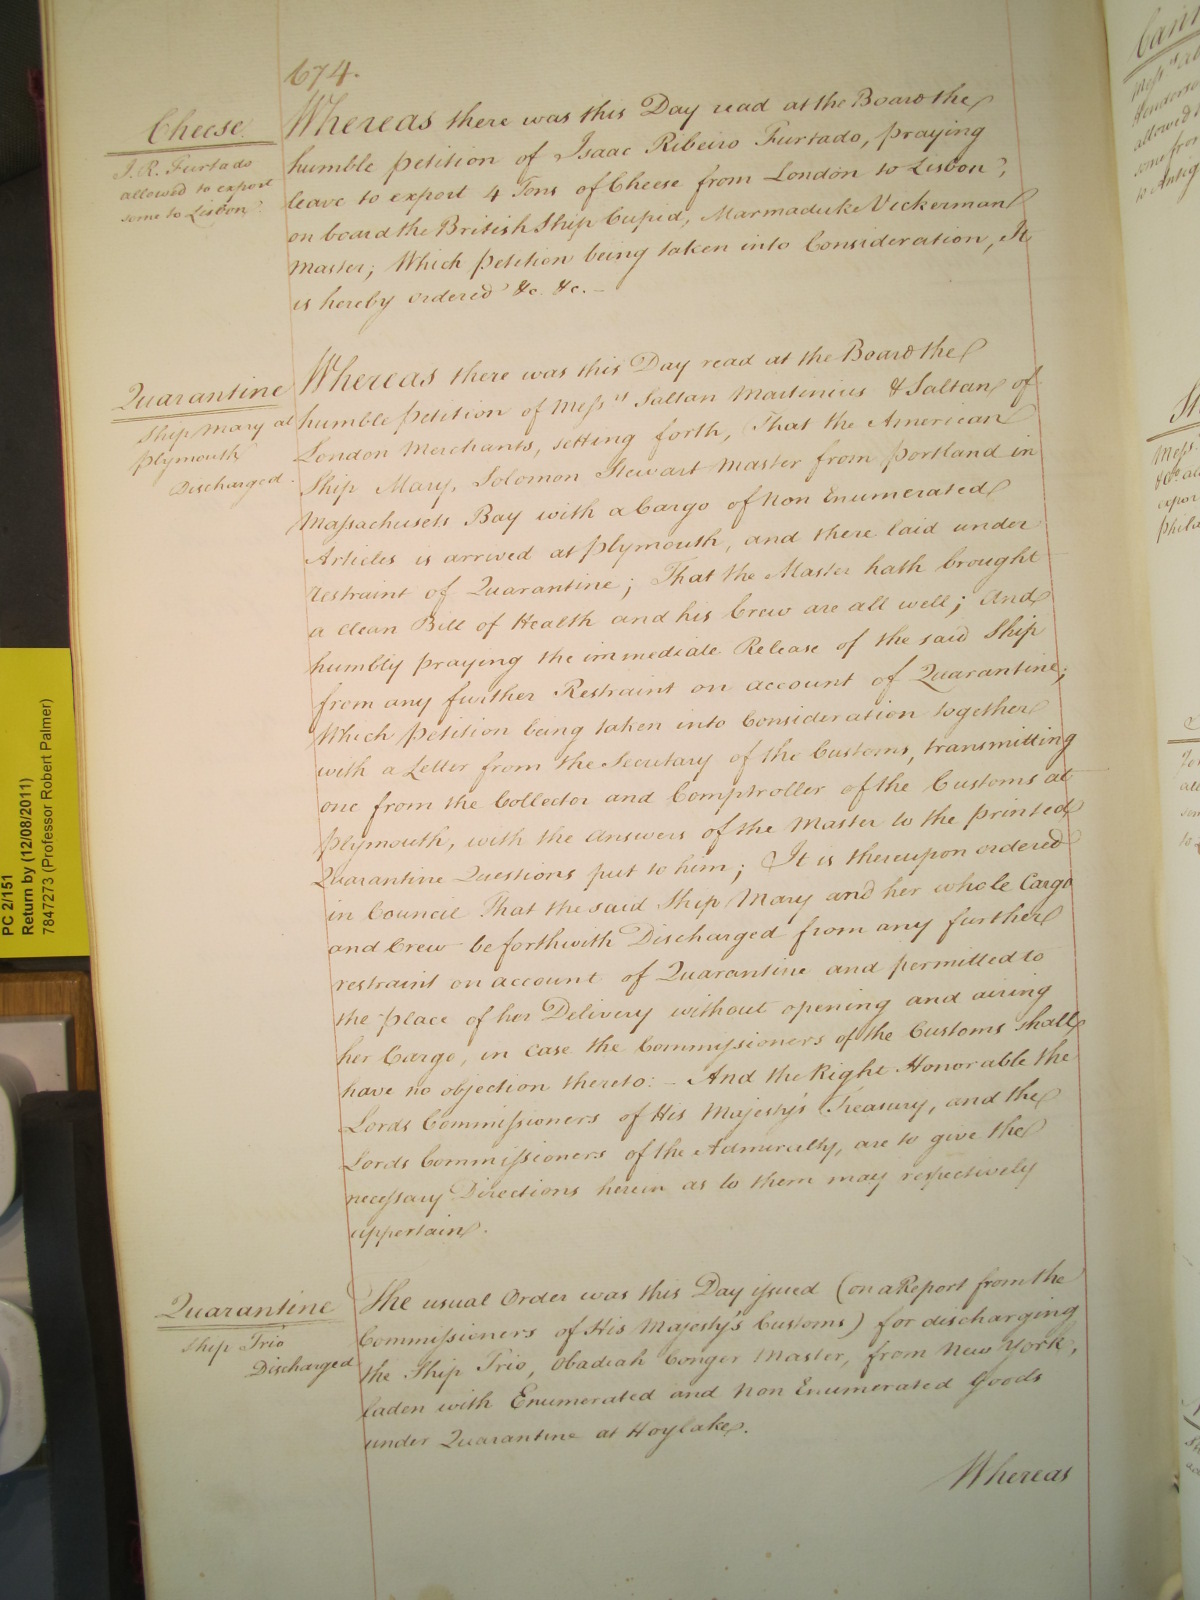 674.
Cheese
J. R. Furtado
allowed to export
some to Lisbon
Whereas there was this Day read at the Board the
humble petition of Isaac Ribeiro Furtado, praying
leave to export 4 Tons of Cheese from London to Lisbon,
on board the British Ship Cupid, Marmaduke Vickerman
Master; Which petition being taken into Consideration, It
is hereby ordered &c. &c. –
Quarantine
Ship Mary at
Plymouth
Discharged
Whereas there was this Day read at the Board the
humble petition of Messrs Saltan Martinius & Saltan of
London Merchants, setting forth, That the American
Ship Mary, Solomon Stewart Master from Portland in
Massachusets Bay with a Cargo of Non Enumerated
Articles is arrived at Plymouth, and there laid under
restraint of Quarantine; That the Master hath brought
a clean Bill of Health and his Crew are all well; And
humbly praying the immediate Release of the said Ship
from any further Restraint on account of Quarantine;
Which petition being taken into Consideration together
with a Letter from the Secretary of the Customs, transmitting
one from the Collector and Comptroller of the Customs at
Plymouth, with the Answers of the Master to the printed
Quarantine Questions put to him; It is thereupon ordered
in Council That the said Ship Mary and her whole Cargo
and Crew be forthwith Discharged from any further
restraint on account of Quarantine and permitted to
the place of her Delivery without opening and airing
her Cargo, in case the Commissioners of the Customs shall
have no objection thereto: – And the Right Honorable the
Lords Commissioners of His Majesty's Treasury, and the
Lords Commissioners of the Admiralty, are to give the
necessary Directions herein as to them may respectively
appertain.
Quarantine
Ship Trio
Discharged
The usual Order was this Day issued (on a Report from the
Commissioners of His Majesty's Customs) for discharging
the Ship Trio, Obadiah Conger Master, from New York,
laden with Enumerated and Non Enumerated Goods
under Quarantine at Hoylake.
Whereas
PC 2/151
Return by (12/08/2011)
7847273 (Professor Robert Palmer)